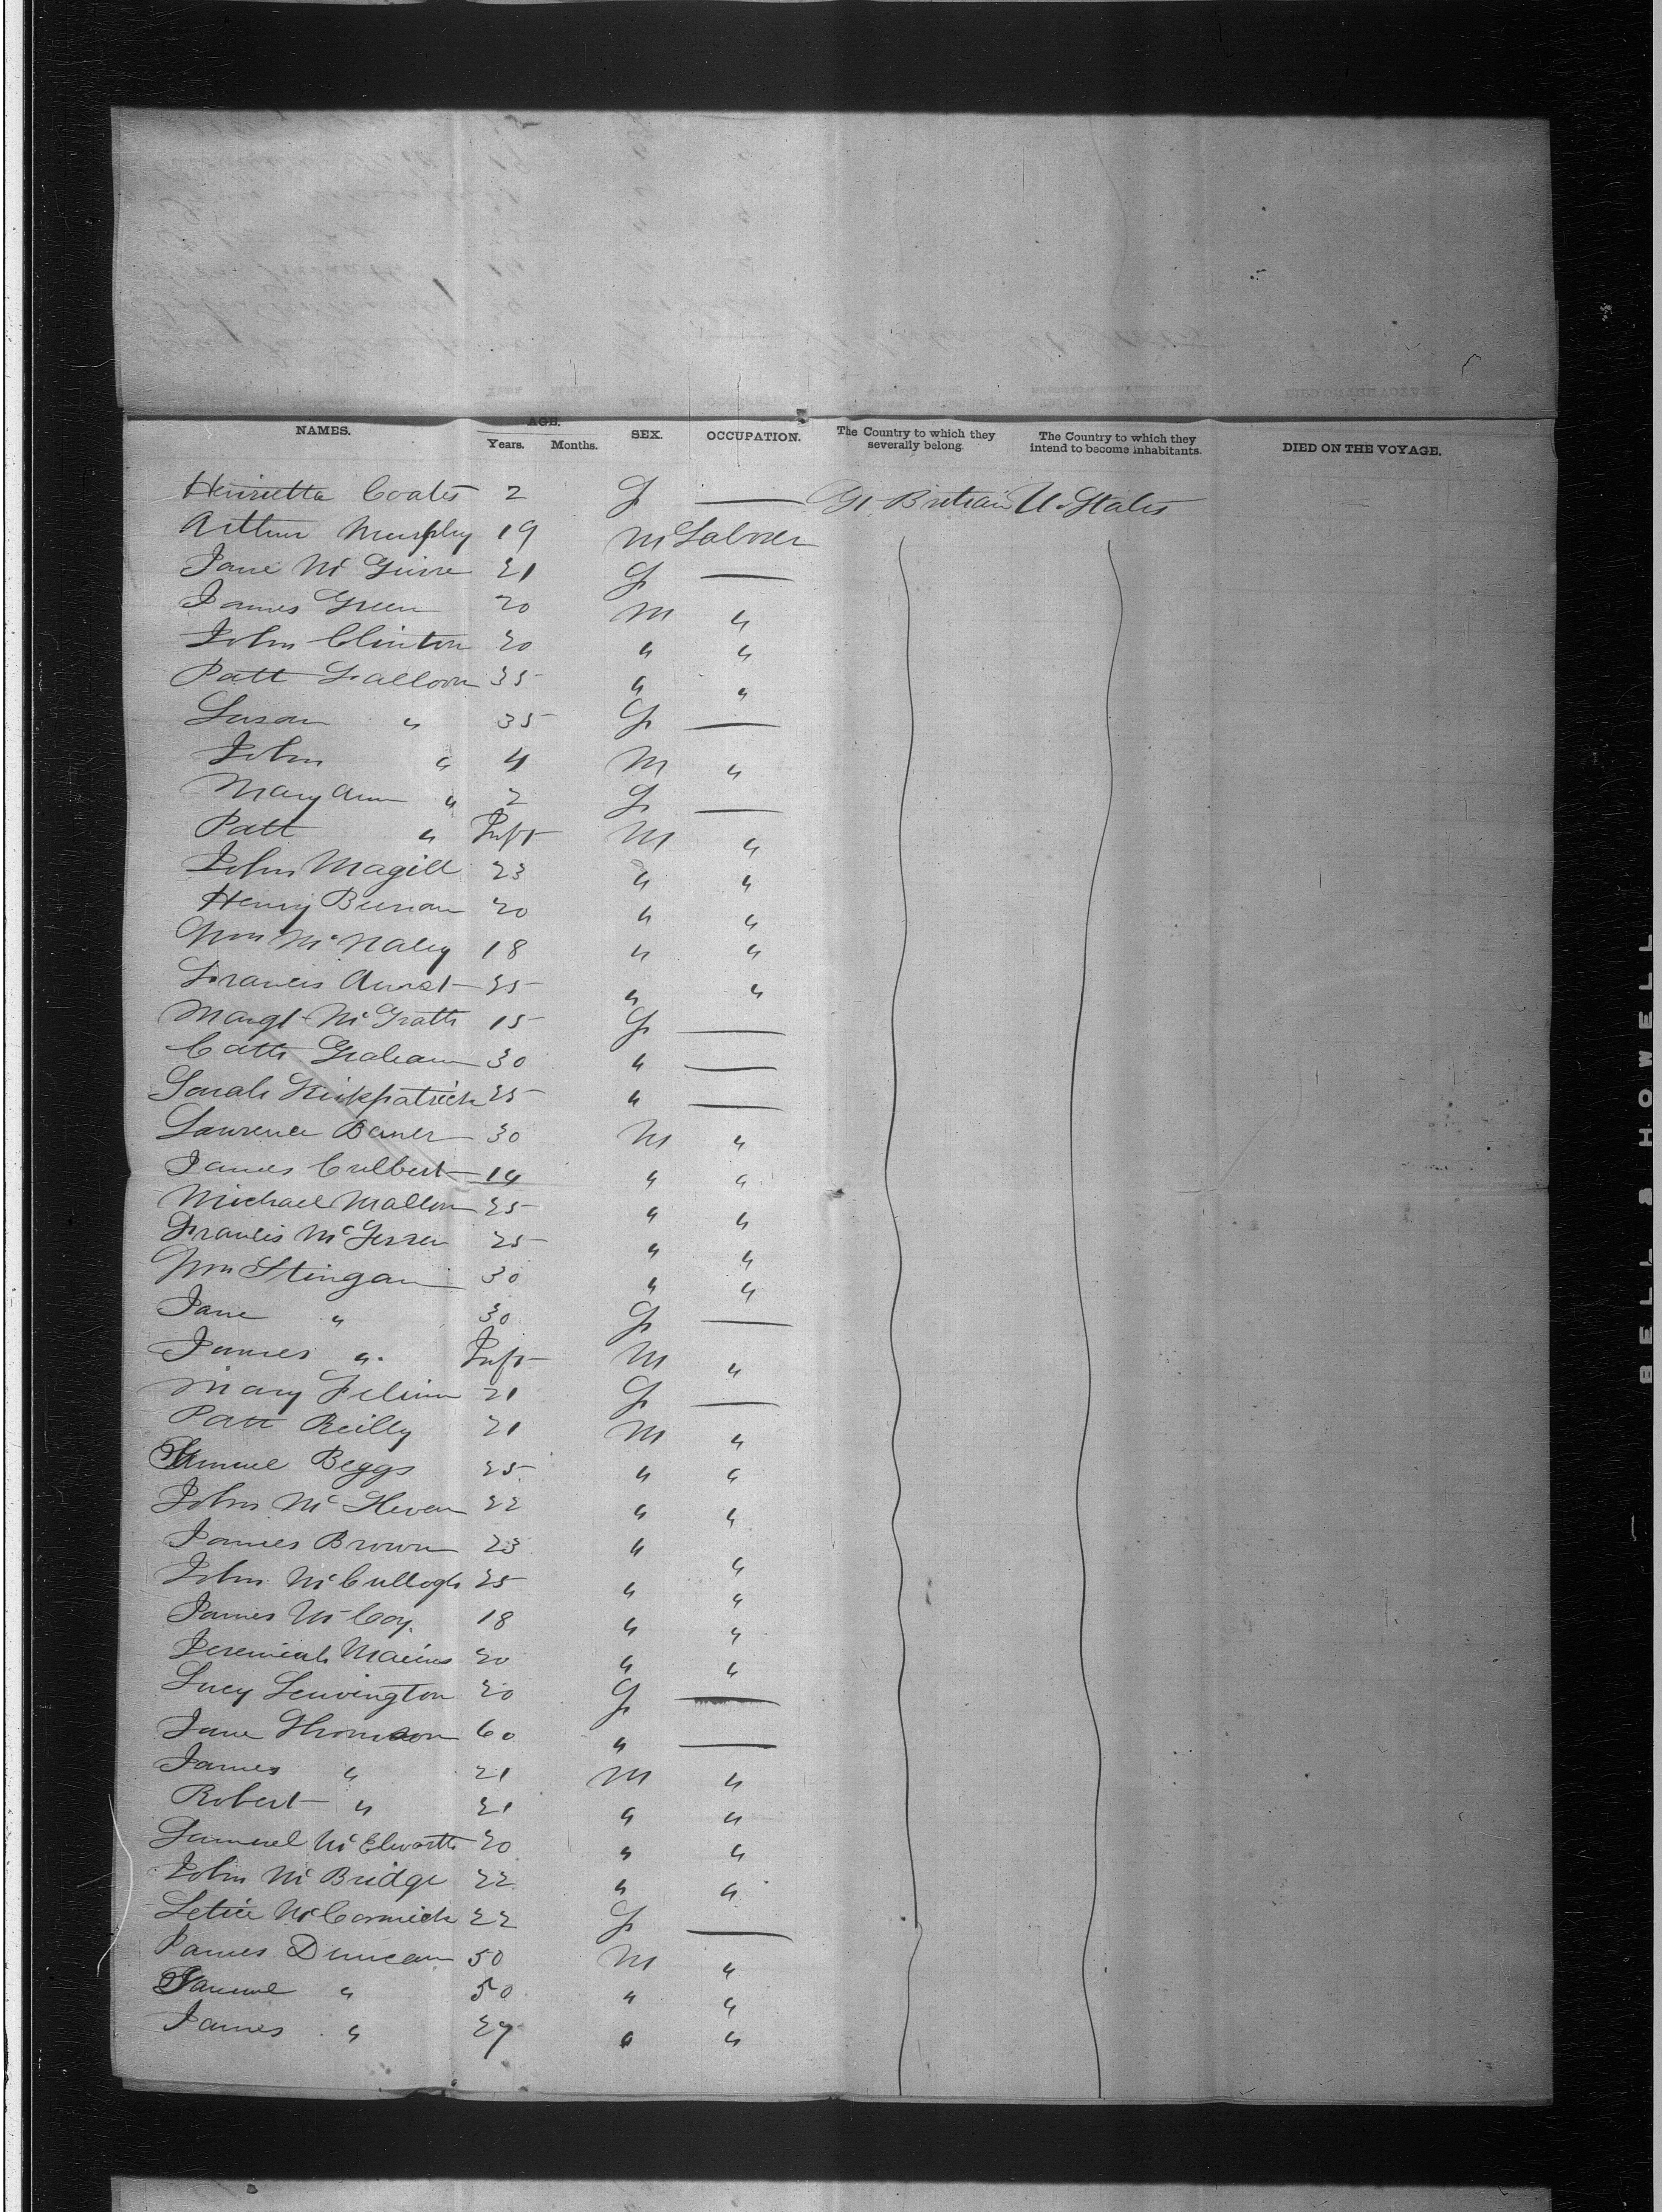 NAMES. AGE. Years. Months. SEX. OCCUPATION. The Country to which they severally belong. The Country to which they intend to become inhabitants. DIED ON THE VOYAGE.
Henrietta Coates 2 F — Gt Britain U. States
Arthur Murphy 19 M Laborer
Jane McGuire 21 F —
James Green 20 M "
John Clinton 20 " "
Patt Falloon 35 " "
Susan " 35 F —
John " 4 M "
Mary Ann " 2 F —
Patt " Inft M "
John Magill 23 " "
Henry 20 " "
Wm McNaley 18 " "
Francis 25 " "
Margt McGrath 15 F —
Cath Graham 30 " —
Sarah Kirkpatrick 25 " —
Lawrence 30 M "
James Culbert 14 " "
Michael Mallon 25 " "
Francis 25 " "
Wm Stingan 30 " "
Jane " 30 F —
James " Inft M "
Mary 21 F —
Patt Reilly 21 M "
Samuel Beggs 25 " "
John 22 " "
James Brown 23 " "
John McCullogh 25 " "
James McCoy 18 " "
Jeremiah 20 " "
Lucy 20 F —
Jane Thomson 60 " —
James " 21 M "
Robert " 21 " "
Samuel McElwath 20 " "
John McBridge 22 " "
Letice McCormick 22 F —
James Duncan 50 M "
Samuel " 50 " "
James " 27 " "
BELL & HOWELL